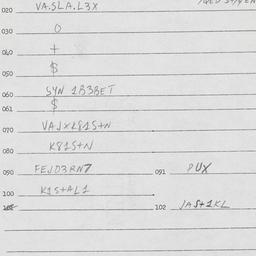 020 VA.SLA.L3X
030 O
040 +
050 $
060 SYN 1B3BET
061 $
070 VAJXL81S+N
080 K81S+N
090 FEJO3RN7 091 PUX
100 K1S+AL1
102 JAS+1KL